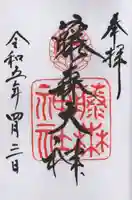 奉拝
藤森大神
藤森神社
令和五年四月三日